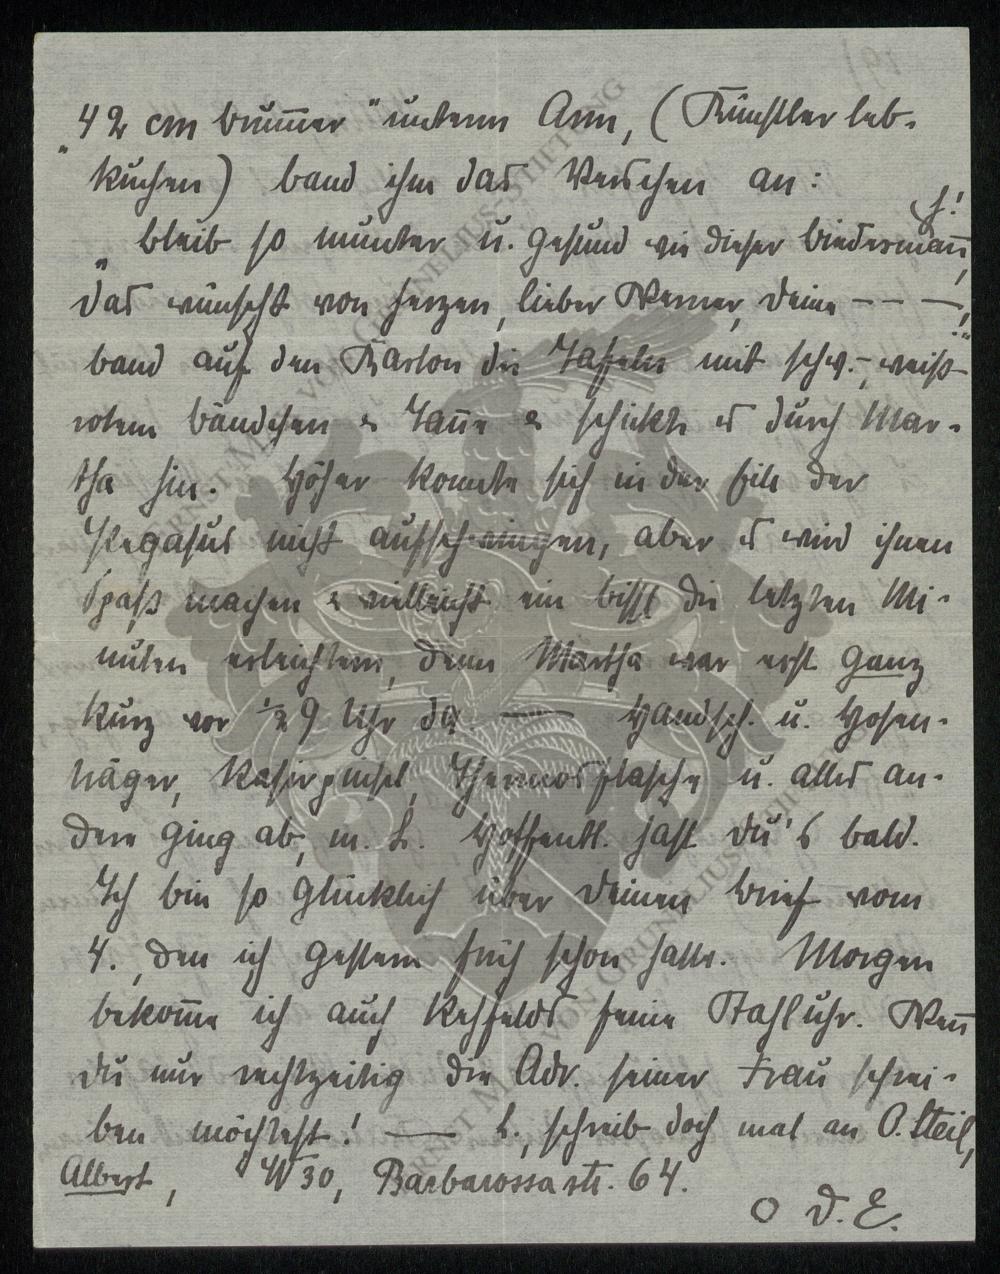 „42 cm brummer" unterm Arm, (Künstler leb-
kuchen) band ihm das Verschen an:
„bleib so munter u. gesund wie dieser biedermañ,
das wünscht von herzen, lieber Werner, deine – – –!"
band auf den Karton die Tafeln mit schw.-, weiß
rotem bändchen & Tañe & schickte es durch Mar-
tha hin. Höher konnte sich in der Eile der
Pegasus nicht aufschwingen, aber es wird ihnen
Spaß machen & vielleicht ein bissl die letzten Mi-
nuten erleichtern, denn Martha war erst ganz
kurz vor ½ 9 Uhr da. — Handsch. u. Hosen-
träger, Rasierpinsel, Thermosflasche u. alles an-
dere ging ab, m. L. Hoffentl. hast du's bald.
Ich bin so glücklich über deinen brief vom
4., den ich gestern früh schon hatte. Morgen
bekom̄e ich auch Rehfelds feine Stahluhr. Weñ
du nur rechtzeitig die Adr. seiner Frau schrei-
ben möchtest! — L., schreib doch mal an O. Steil,
Albert, W 30, Barbarossastr. 64.
D. E.
ERNST MAX VON GRUNELIUS-STIFTUNG
ERNST MAX VON GRUNELIUS-STIFTUNG